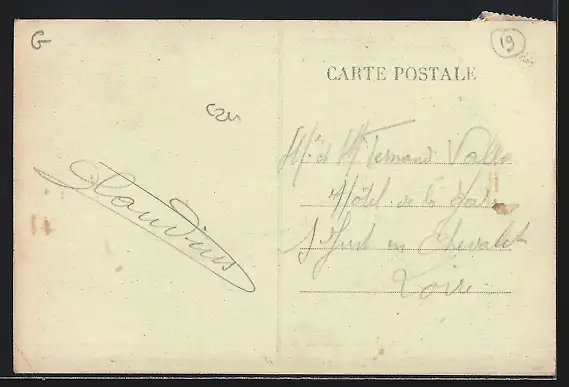 G
19
CARTE POSTALE
Claudius
Mr et Mme Fernand Valla
Hôtel de la
St Just en Chevalet
Loire